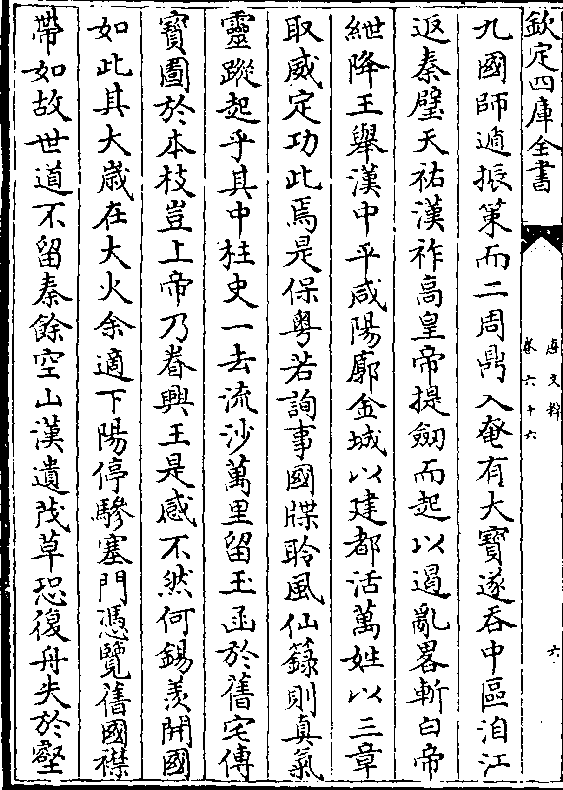 欽定四庫全書
唐文粹
卷六十六
六
九國師遁振䇿而二周鼎入奄有大寶遂吞中區洎江
返秦璧天祐漢祚高皇帝提劒而起以遏亂畧斬白帝
紲降王舉漢中平咸陽廓金城以建都活萬姓以三章
取威定功此焉是保粤若詢事國牒聆風仙籙則真氣
靈蹤起乎其中柱史一去流沙萬里留玉函於舊宅傳
寶圖於本枝豈上帝乃眷興王是感不然何錫羨開國
如此其大嵗在大火余適下陽停驂塞門憑覽舊國襟
帶如故世道不留秦餘空山漢遺茂草恐復舟失於壑